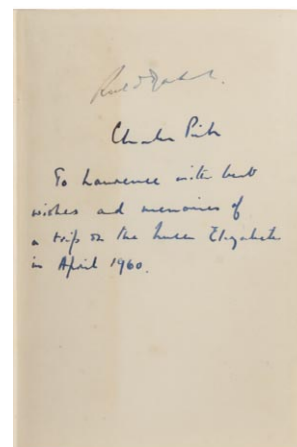 Roald Dahl.
Charles Pick
To Lawrence with best
wishes and memories of
a trip on the Queen Elizabeth
in April 1960.